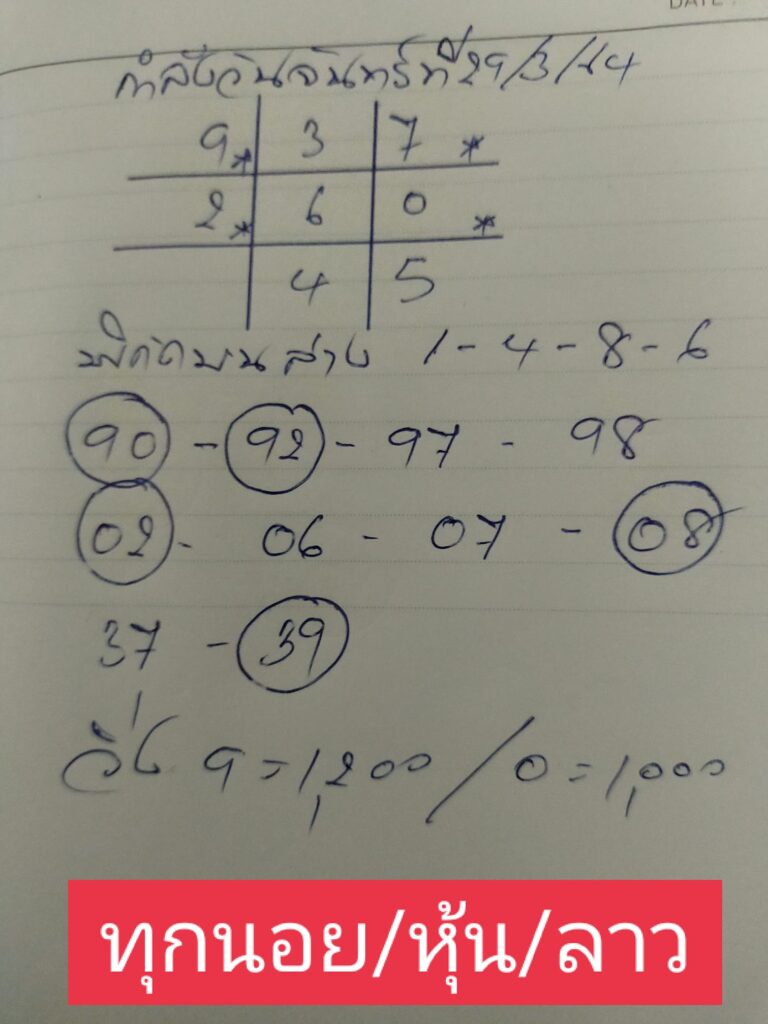 DATE
กำลังวันจันทร์ที่ 29/3/64
9* 3 7 *
2* 6 0 *
4 5
พิกัดบน ล่าง 1 - 4 - 8 - 6
90 - 92 - 97 - 98
02 - 06 - 07 - 08
37 - 39
วิ่ง 9 = 1,200 / 0 = 1,000
ทุกนอย/หุ้น/ลาว